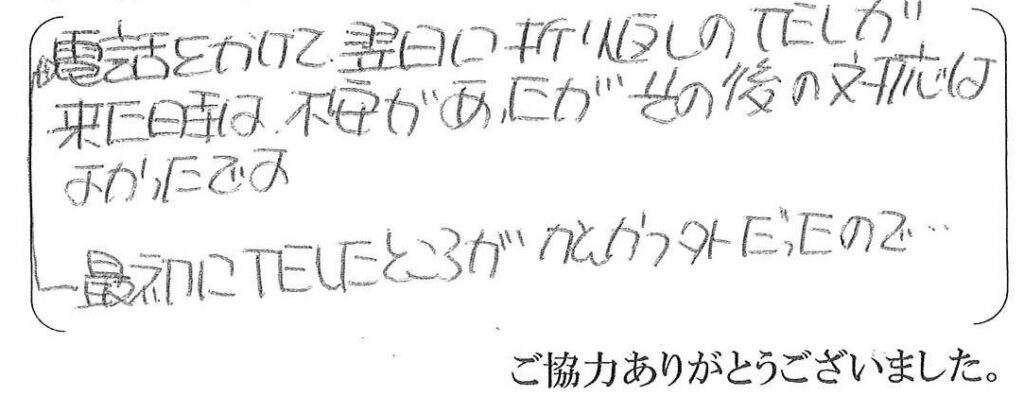 電話をかけて、翌日に折り返しのTELが
来た時は、不安があったがその後の対応は
よかったです
最初にTELしたところが かんかつ外だったので…
ご協力ありがとうございました。